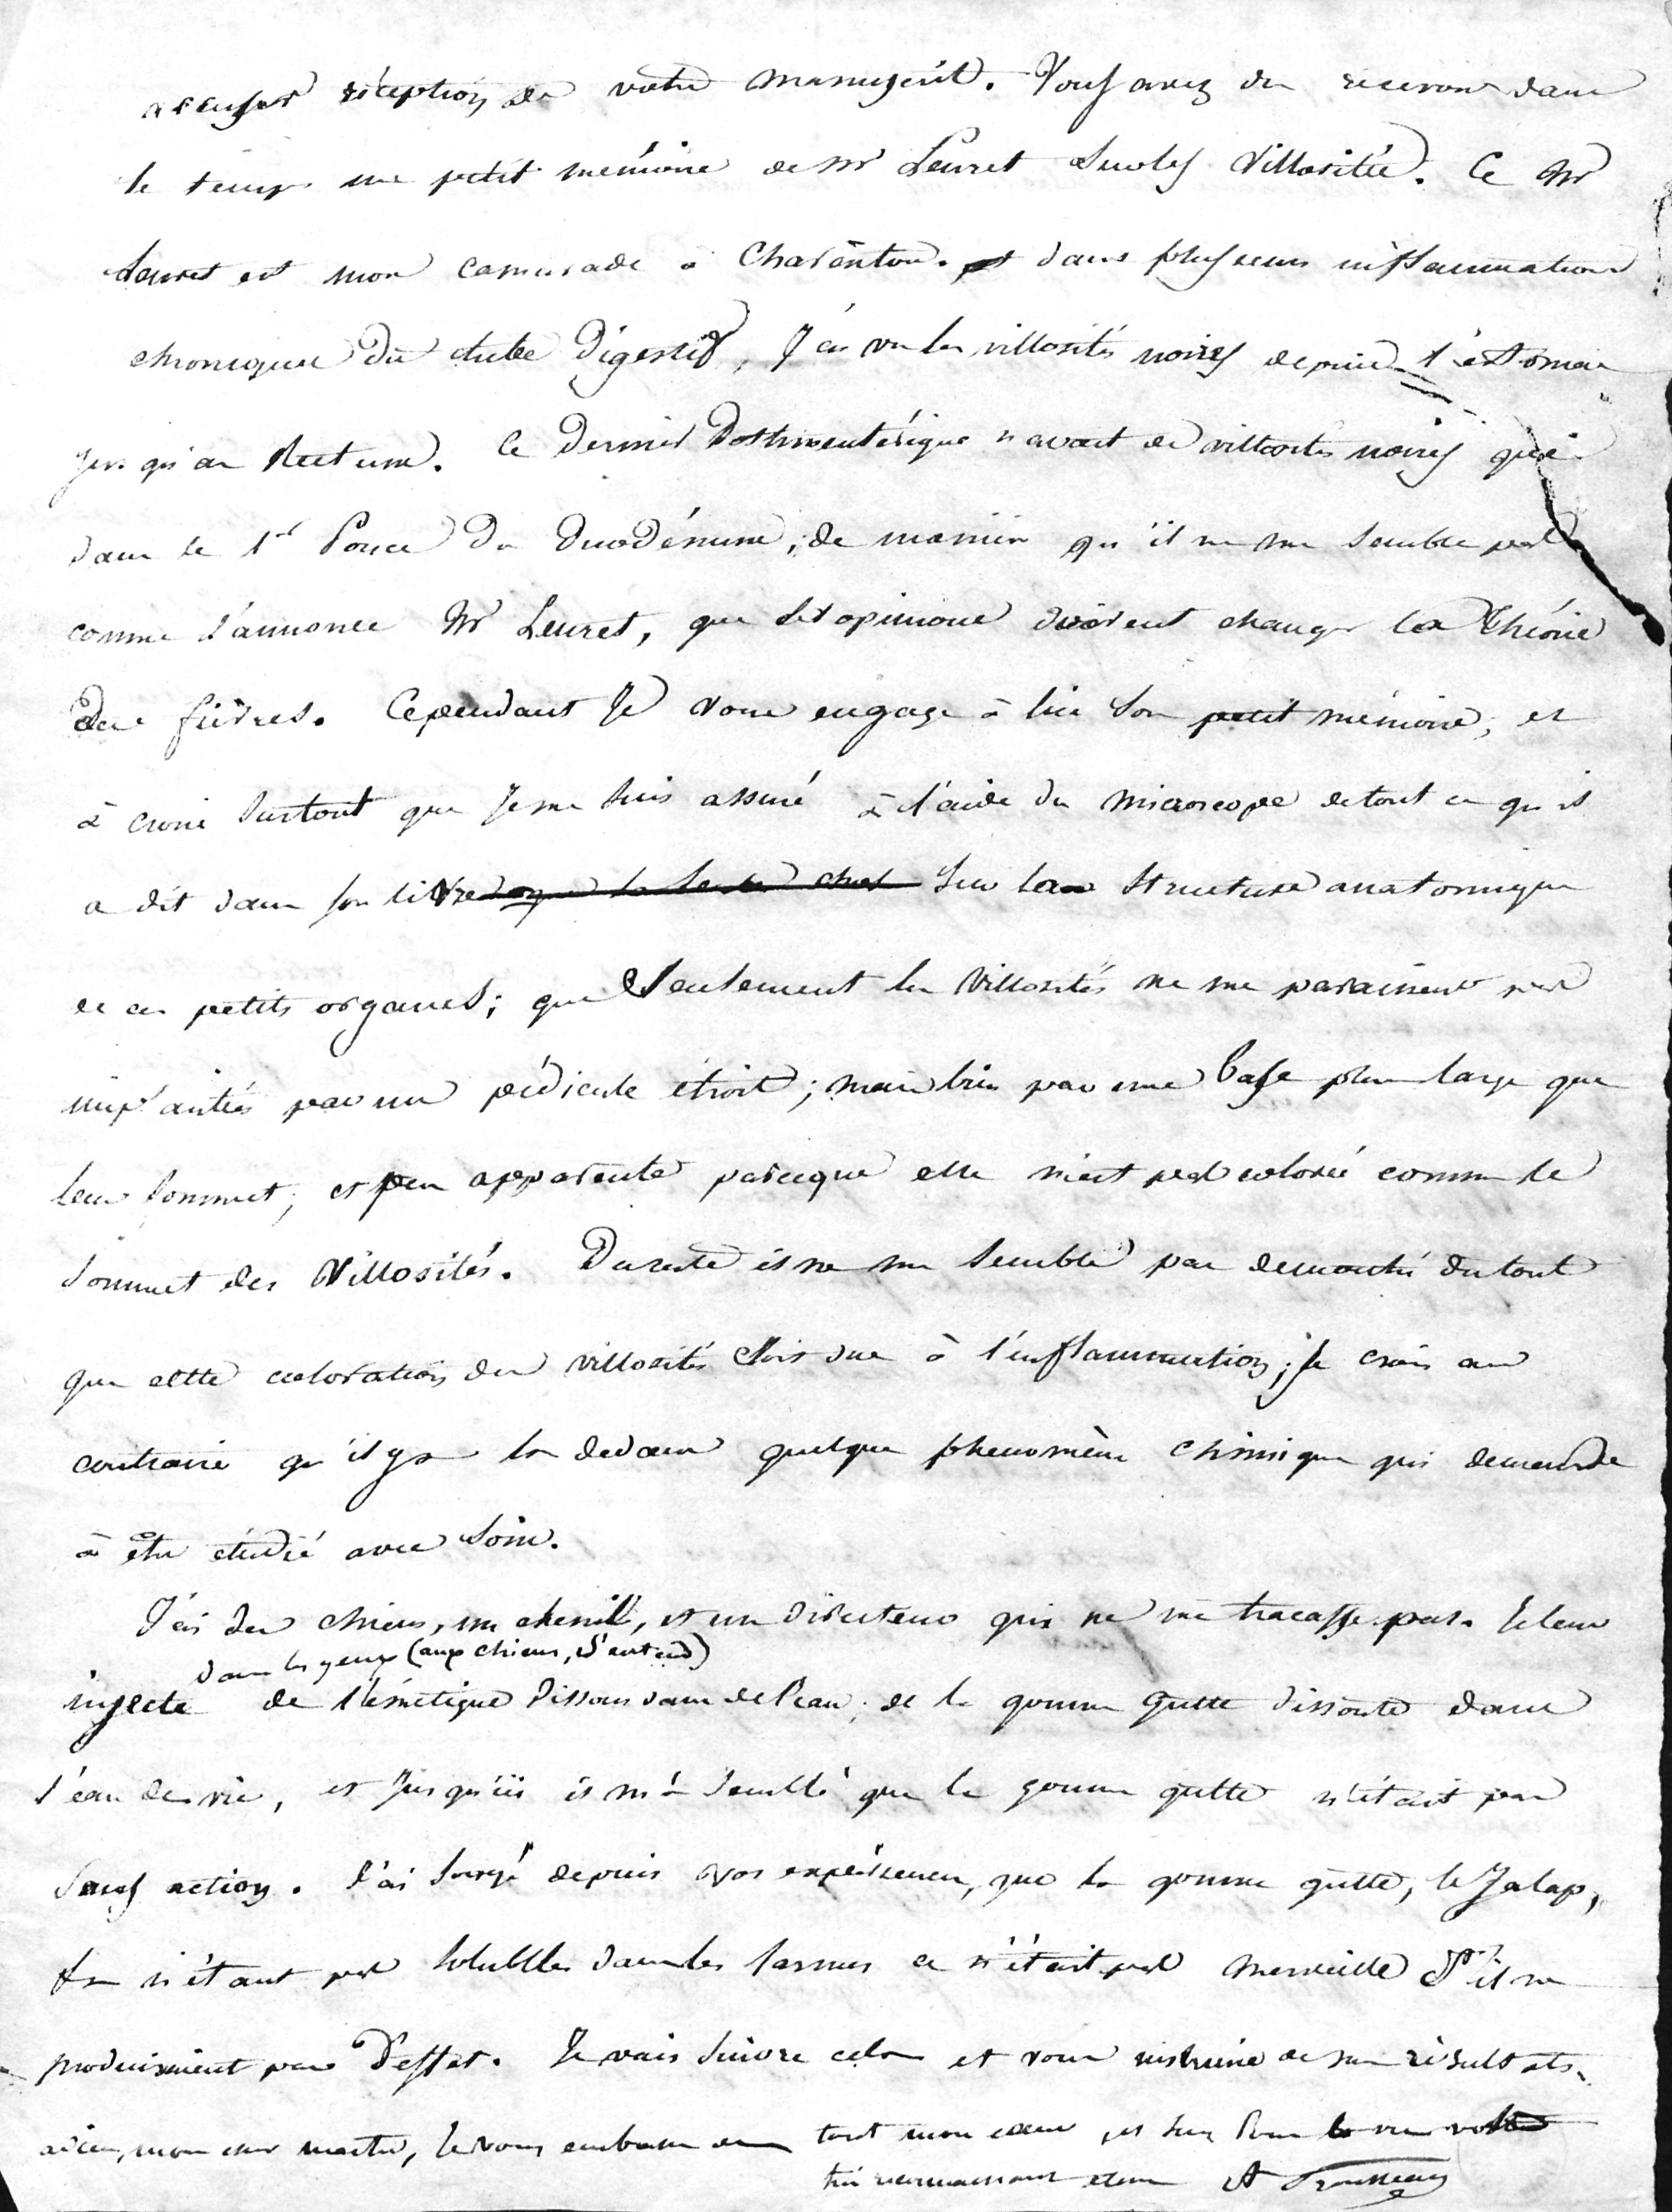 accuser réception de votre manuscrit. Vous avez du recevoir dans
le temps un petit mémoire de Mr Leuret sur les villosités. Ce Mr
Leuret est mon camarade à Charenton. et dans plusieurs inflammations
chroniques du tube digestif, J'ai vu les villosités noires depuis l'estomac
jusqu'au Rectum. Ce dernier Dothinentérique n'avait de villosités noires que
dans le 1er Pouce du Duodénum; de manière qu'il ne me semble pas
comme l'annonce Mr Leuret, que ses opinions doivent changer la théorie
des fièvres. Cependant Je vous engage à lire son petit mémoire, et
à croire surtout que Je me suis assuré à l'aide du microscope de tout ce qu'il
a dit dans son livre sur la structure anatomique
de ces petits organes; que seulement les villosités ne me paraissent pas
implantées par un pédicule étroit; mais bien par une base plus large que
leur sommet, et peu apparente parceque elle n'est pas colorée comme le
sommet des villosités. Du reste il ne me semble pas demontré du tout
que cette coloration des villosités soit due à l'inflammation; je crois au
contraire qu'il y a la dedans quelque phenomène chimique qui demande
à être étudié avec soin.
J'ai des chiens, un chenil, et un directeur qui ne me tracasse pas. Je leur
dans les yeux (aux chiens, s'entend)
injecte de l'émétique dissous dans de l'eau, de la gomme gutte dissoute dans
l'eau de vie, et Jusqu'ici il m'a semblé que la gomme gutte n'était pas
sans action. J'ai songé depuis vos expériences, que la gomme gutte, le Jalap,
&a n'étant pas solubles dans les larmes ce n'était pas merveille s'ils ne
produisaient pas d'effet. Je vais suivre cela et vous instruire de mes résultats.
adieu, mon cher maitre, Je vous embrasse de tout mon cœur, et suis pour la vie votre
très reconnaissant elève A Trousseau